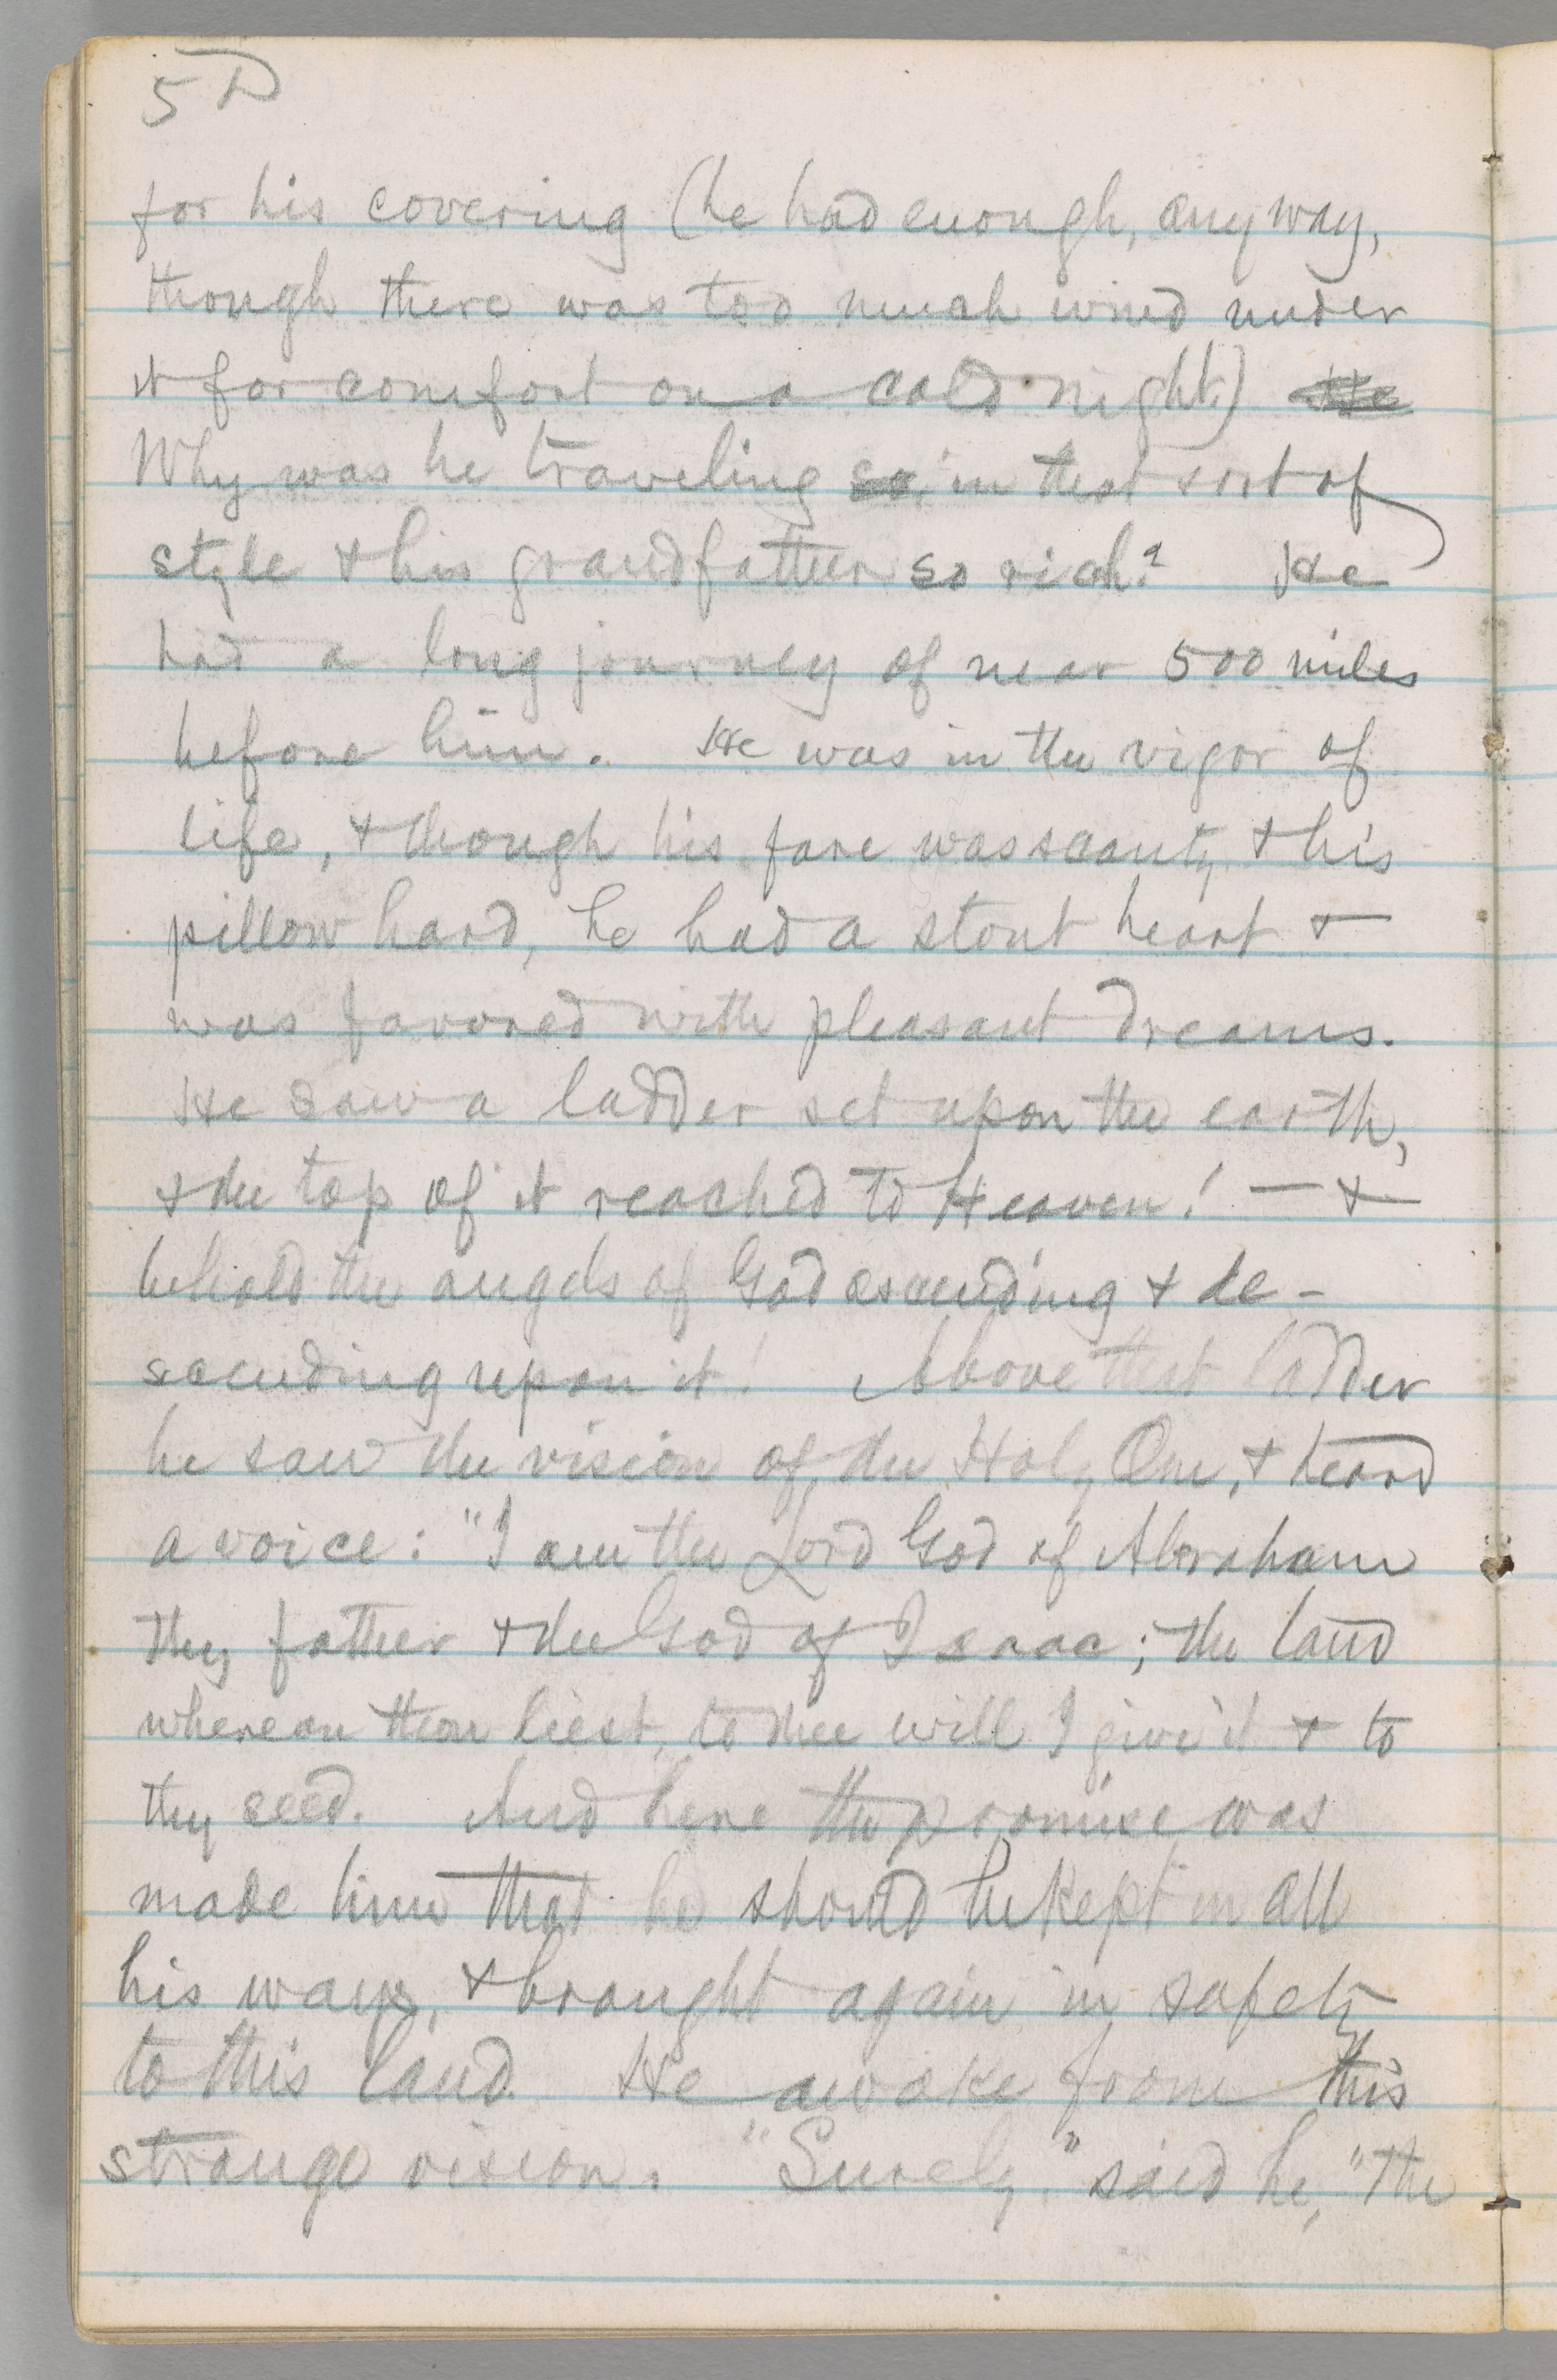 5
for his covering (he had enough, anyway,
though there was too much wind under
it for comfort on a cold night.) He
Why was he traveling so in that sort of
style & his grandfather so rich? He
had a long journey of near 500 miles
before him. He was in the vigor of
life, & though his fare was scanty & his
pillow hard, he had a stout heart &
was favored with pleasant dreams.
He saw a ladder set upon the earth,
& the top of it reached to Heaven! — &
behold the angels of God ascending & de-
scending upon it! Above that ladder
he saw the vision of the Holy One, & heard
a voice: "I am the Lord God of Abraham
thy father & the God of Isaac; the land
whereon thou liest, to thee will I give it & to
thy seed. And here the promise was
made him that he should be kept in all
his ways, & brought again in safety
to this land. He awoke from this
strange vision. "Surely," said he, "the